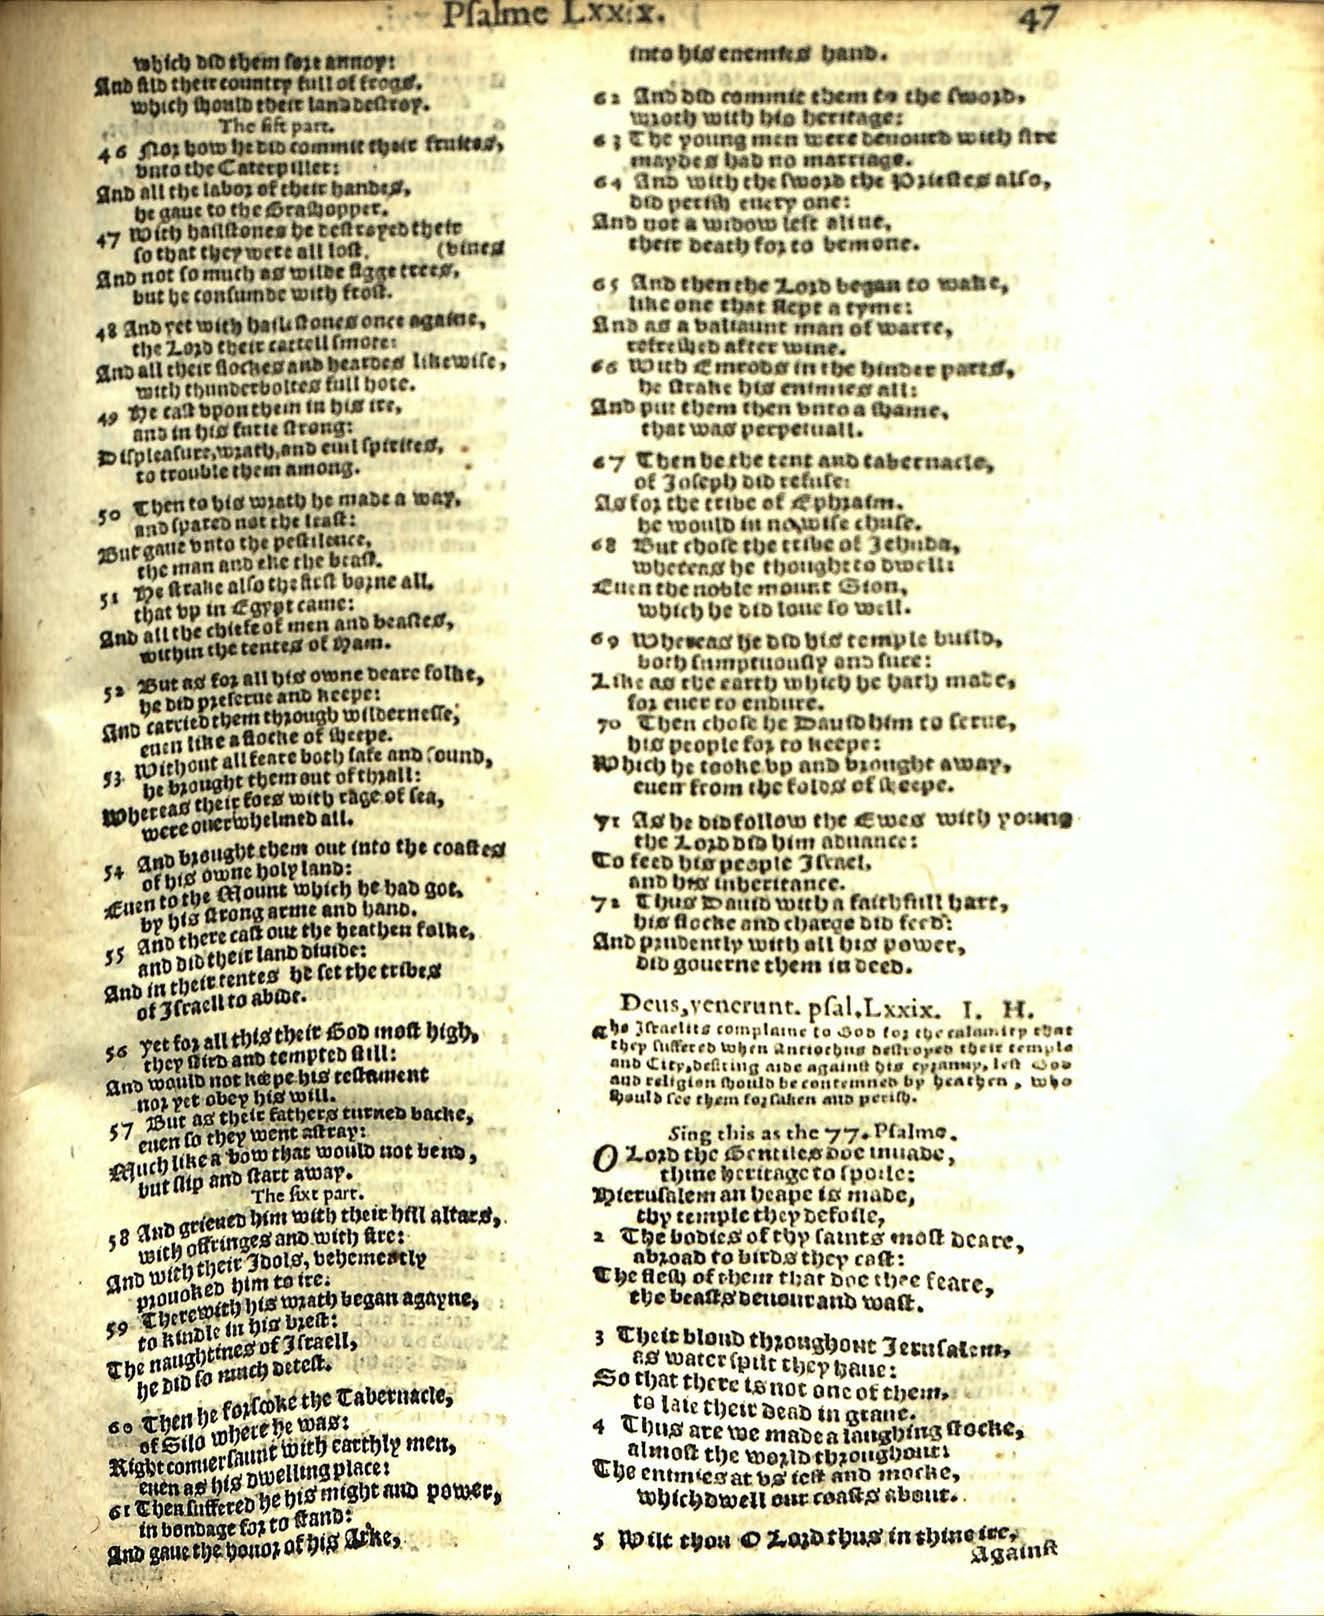 Psalme Lxxix.
47
which did them sore annoy:
And fild their country full of frogs,
which should their land destroy.
The fift part.
46 Nor how he did commit their fruites,
vnto the Caterpiller:
And all the labor of their handes,
he gaue to the Grashopper.
47 With hailstones he destroyed their
so that they were all lost, (vines
And not so much as wilde figge trees,
but he consumde with frost.
48 And yet with hailestones once againe,
the Lord their cattell smote:
And all their flockes and heardes likewise,
with thunderboltes full hote.
49 He cast vpon them in his ire,
and in his furie strong:
Displeasure, wrath, and euil spirites,
to trouble them among.
50 Then to his wrath he made a way,
and spared not the least:
But gaue vnto the pestilence,
the man and eke the beast.
51 He strake also the first borne all,
that vp in Egypt came:
And all the chiefe of men and beastes,
within the tentes of Ham.
52 But as for all his owne deare folke,
he did preserue and keepe:
And carried them through wildernesse,
euen like a flocke of sheepe.
53 Without all feare both safe and sound,
he brought them out of thrall:
Whereas their foes with rage of sea,
were ouerwhelmed all.
54 And brought them out into the coastes
of his owne holy land:
Euen to the Mount which he had got,
by his strong arme and hand.
55 And there cast out the heathen folke,
and did their land diuide:
And in their tentes he set the tribes
of Israell to abide.
56 yet for all this their God most high,
they stird and tempted still:
And would not keepe his testament
nor yet obey his will.
57 But as their fathers turned backe,
euen so they went astray:
Much like a bow that would not bend,
but slip and start away.
The sixt part.
58 And grieued him with their hill altars,
with offringes and with fire:
And with their Idols, vehemently
prouoked him to ire.
59 Therewith his wrath began agayne,
to kindle in his brest:
The naughtines of Israell,
he did so much detest.
60 Then he forsooke the Tabernacle,
of Silo where he was:
Right conuersaunt with earthly men,
euen as his dwelling place:
61 Then suffered he his might and power,
in bondage for to stand:
And gaue the honor of his Arke,
into his enemies hand.
62 And did commit them to the sword,
wroth with his heritage:
63 The young men were deuourd with fire
maydes had no marriage.
64 And with the sword the Priestes also,
did perish euery one:
And not a widow left aliue,
their death for to bemone.
65 And then the Lord began to wake,
like one that slept a tyme:
And as a valiaunt man of warre,
refreshed after wine.
66 With Emrods in the hinder parts,
he strake his enimies all:
And put them then vnto a shame,
that was perpetuall.
67 Then he the tent and tabernacle,
of Joseph did refuse:
As for the tribe of Ephraim,
he would in no wise chuse.
68 But chose the tribe of Jehuda,
whereas he thought to dwell:
Euen the noble mount Sion,
which he did loue so well.
69 Whereas he did his temple build,
both sumptuously and sure:
Like as the earth which he hath made,
for euer to endure.
70 Then chose he Dauid him to serue,
his people for to keepe:
Which he tooke vp and brought away,
euen from the folds of sheepe.
71 As he did follow the Ewes with young
the Lord did him aduance:
To feed his people Israel,
and his inheritance.
72 Thus Dauid with a faithfull hart,
his flocke and charge did feed:
And prudently with all his power,
did gouerne them in deed.
Deus, venerunt. psal. Lxxix. I. H.
The Israelits complaine to God for the calamity that
they suffered when Antiochus destroyed their temple
and City, desiring aide against his tyranny, lest God
and religion should be contemned by heathen, who
should see them forsaken and perish.
Sing this as the 77. Psalme.
O Lord the Gentiles doe inuade,
thine heritage to spoile:
Hierusalem an heape is made,
thy temple they defoile,
2 The bodies of thy saints most deare,
abroad to birds they cast:
The flesh of them that doe thee feare,
the beasts deuour and wast.
3 Their bloud throughout Jerusalem,
as water spilt they haue:
So that there is not one of them,
to laie their dead in graue.
4 Thus are we made a laughing stocke,
almost the world throughout:
The enimies at vs iest and mocke,
which dwell our coasts about.
5 Wilt thou O Lord thus in thine ire,
Against